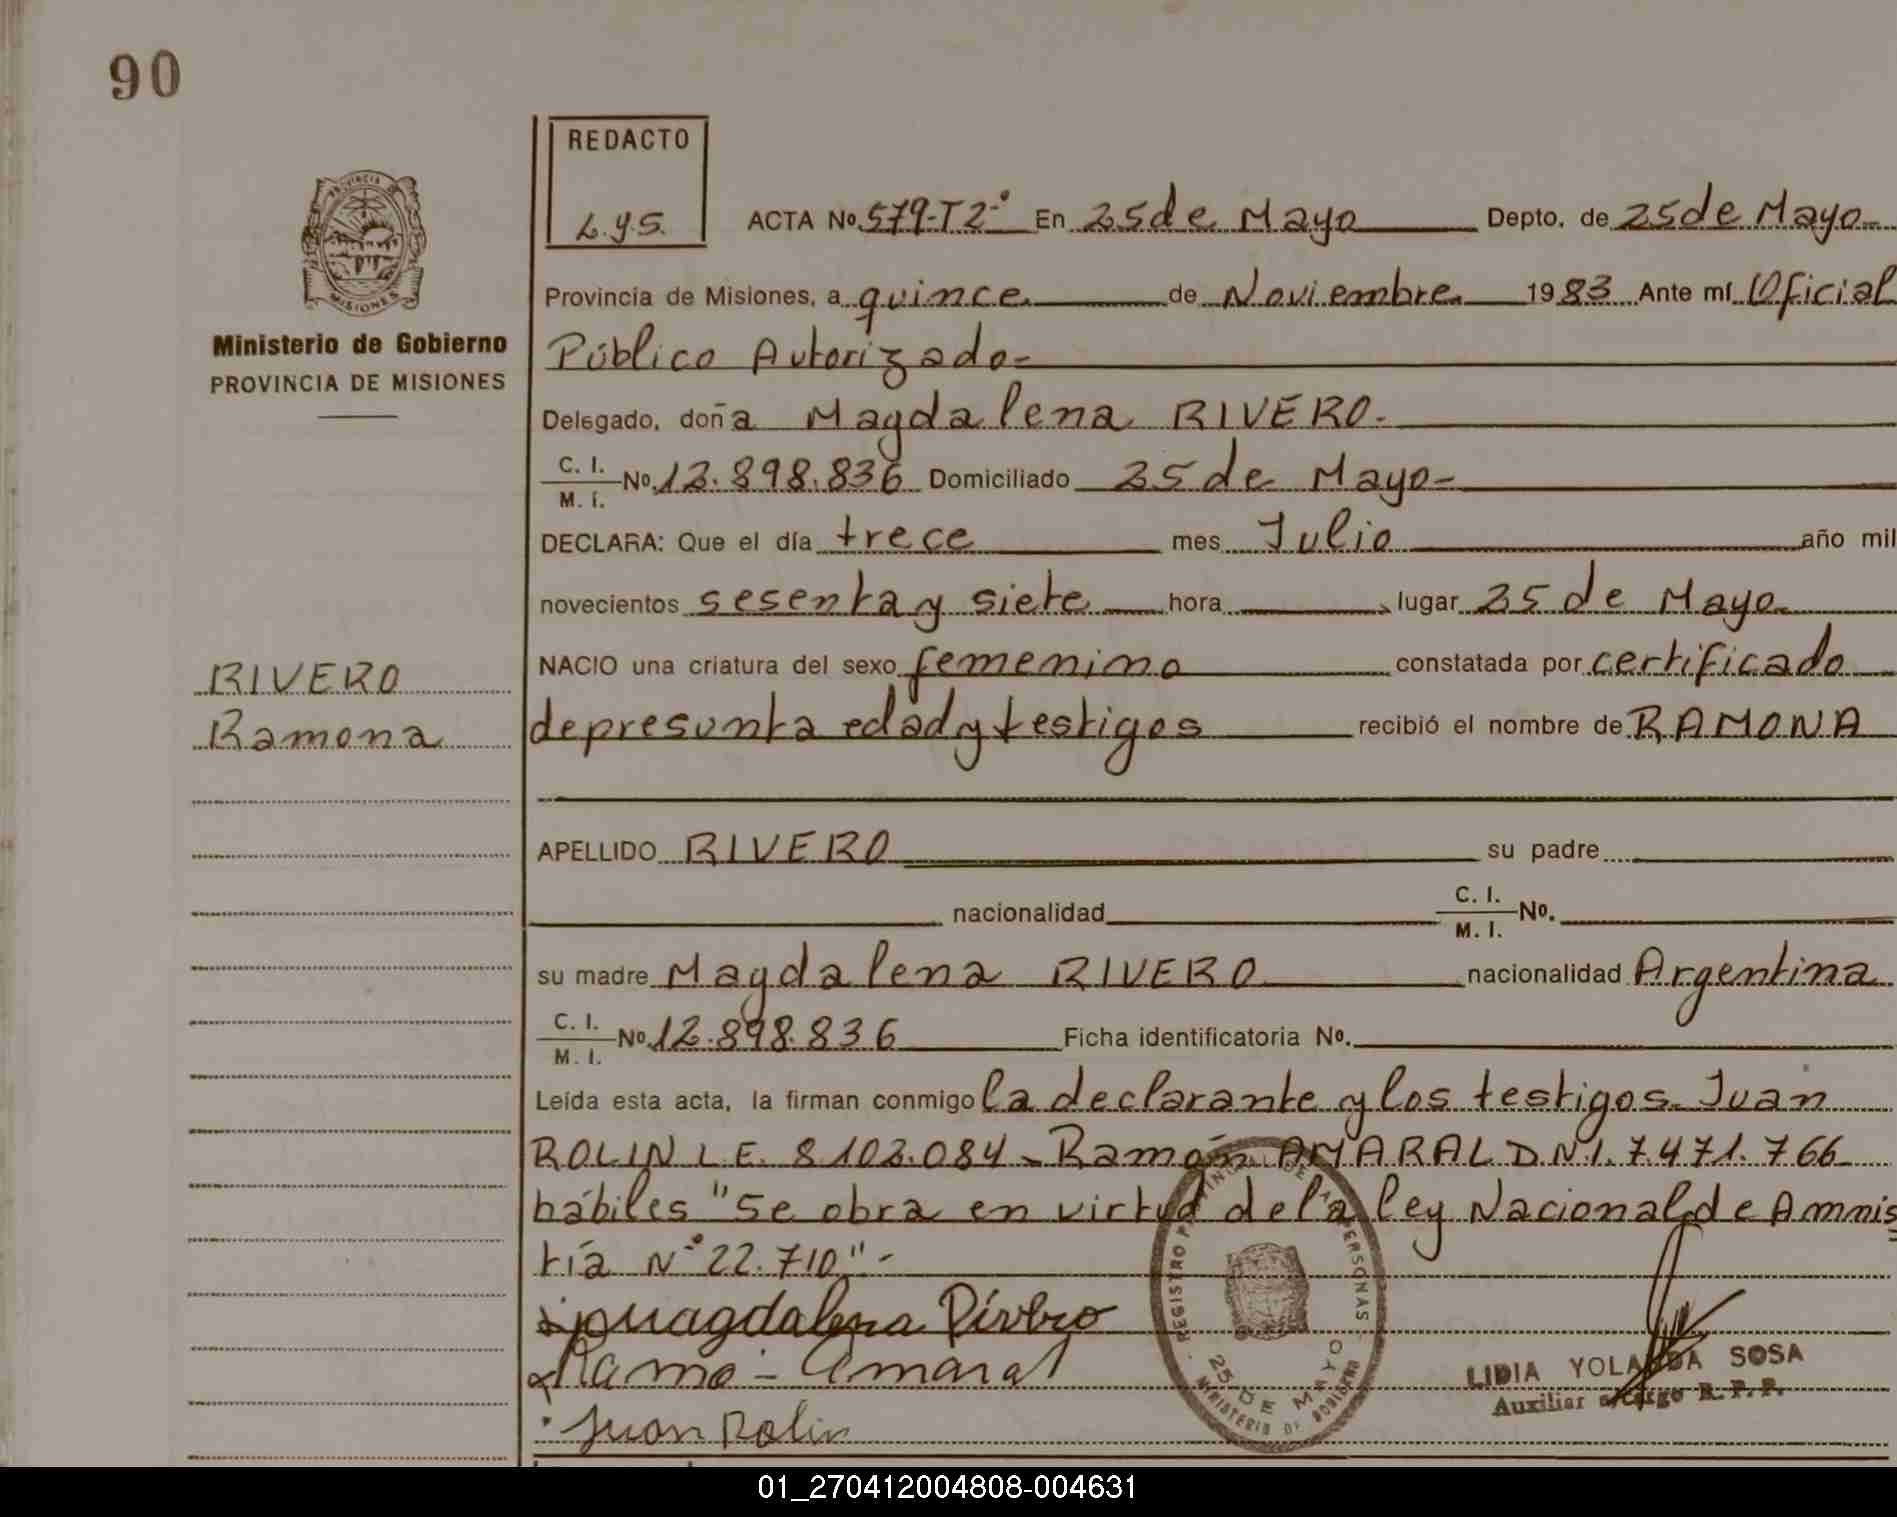 90
REDACTO
L.y.S.
PROVINCIA DE
MISIONES
Ministerio de Gobierno
PROVINCIA DE MISIONES
ACTA Nº 579-T2-º En 25 de Mayo Depto. de 25 de Mayo-
Provincia de Misiones, a quince de Noviembre 1983 Ante mí Oficial
Público Autorizado-
Delegado, doña Magdalena RIVERO-
C. I. M. I. Nº 12.898.836 Domiciliado 25 de Mayo-
DECLARA: Que el día trece mes Julio año mil
novecientos sesenta y siete hora lugar 25 de Mayo
NACIO una criatura del sexo femenino constatada por certificado
de presunta edad y testigos recibió el nombre de RAMONA
RIVERO
Ramona
APELLIDO RIVERO su padre
nacionalidad C. I. M. I. Nº.
su madre Magdalena RIVERO nacionalidad Argentina
C. I. M. I. Nº 12.898.836 Ficha identificatoria Nº.
Leída esta acta, la firman conmigo la declarante y los testigos- Juan
ROLIN L.E. 8102.084 - Ramón AMARAL D.N.I. 7.471.766
hábiles "Se obra en virtud de la ley Nacional de Amnis
tía Nº 22.710"-
magdalena Rivero
Ramo- Amaral
Juan Rolin
REGISTRO PROVINCIAL DE LAS PERSONAS
25 DE MAYO
MINISTERIO DE GOBIERNO
LIDIA YOLANDA SOSA
Auxiliar a/cargo R. P. P.
01_270412004808-004631